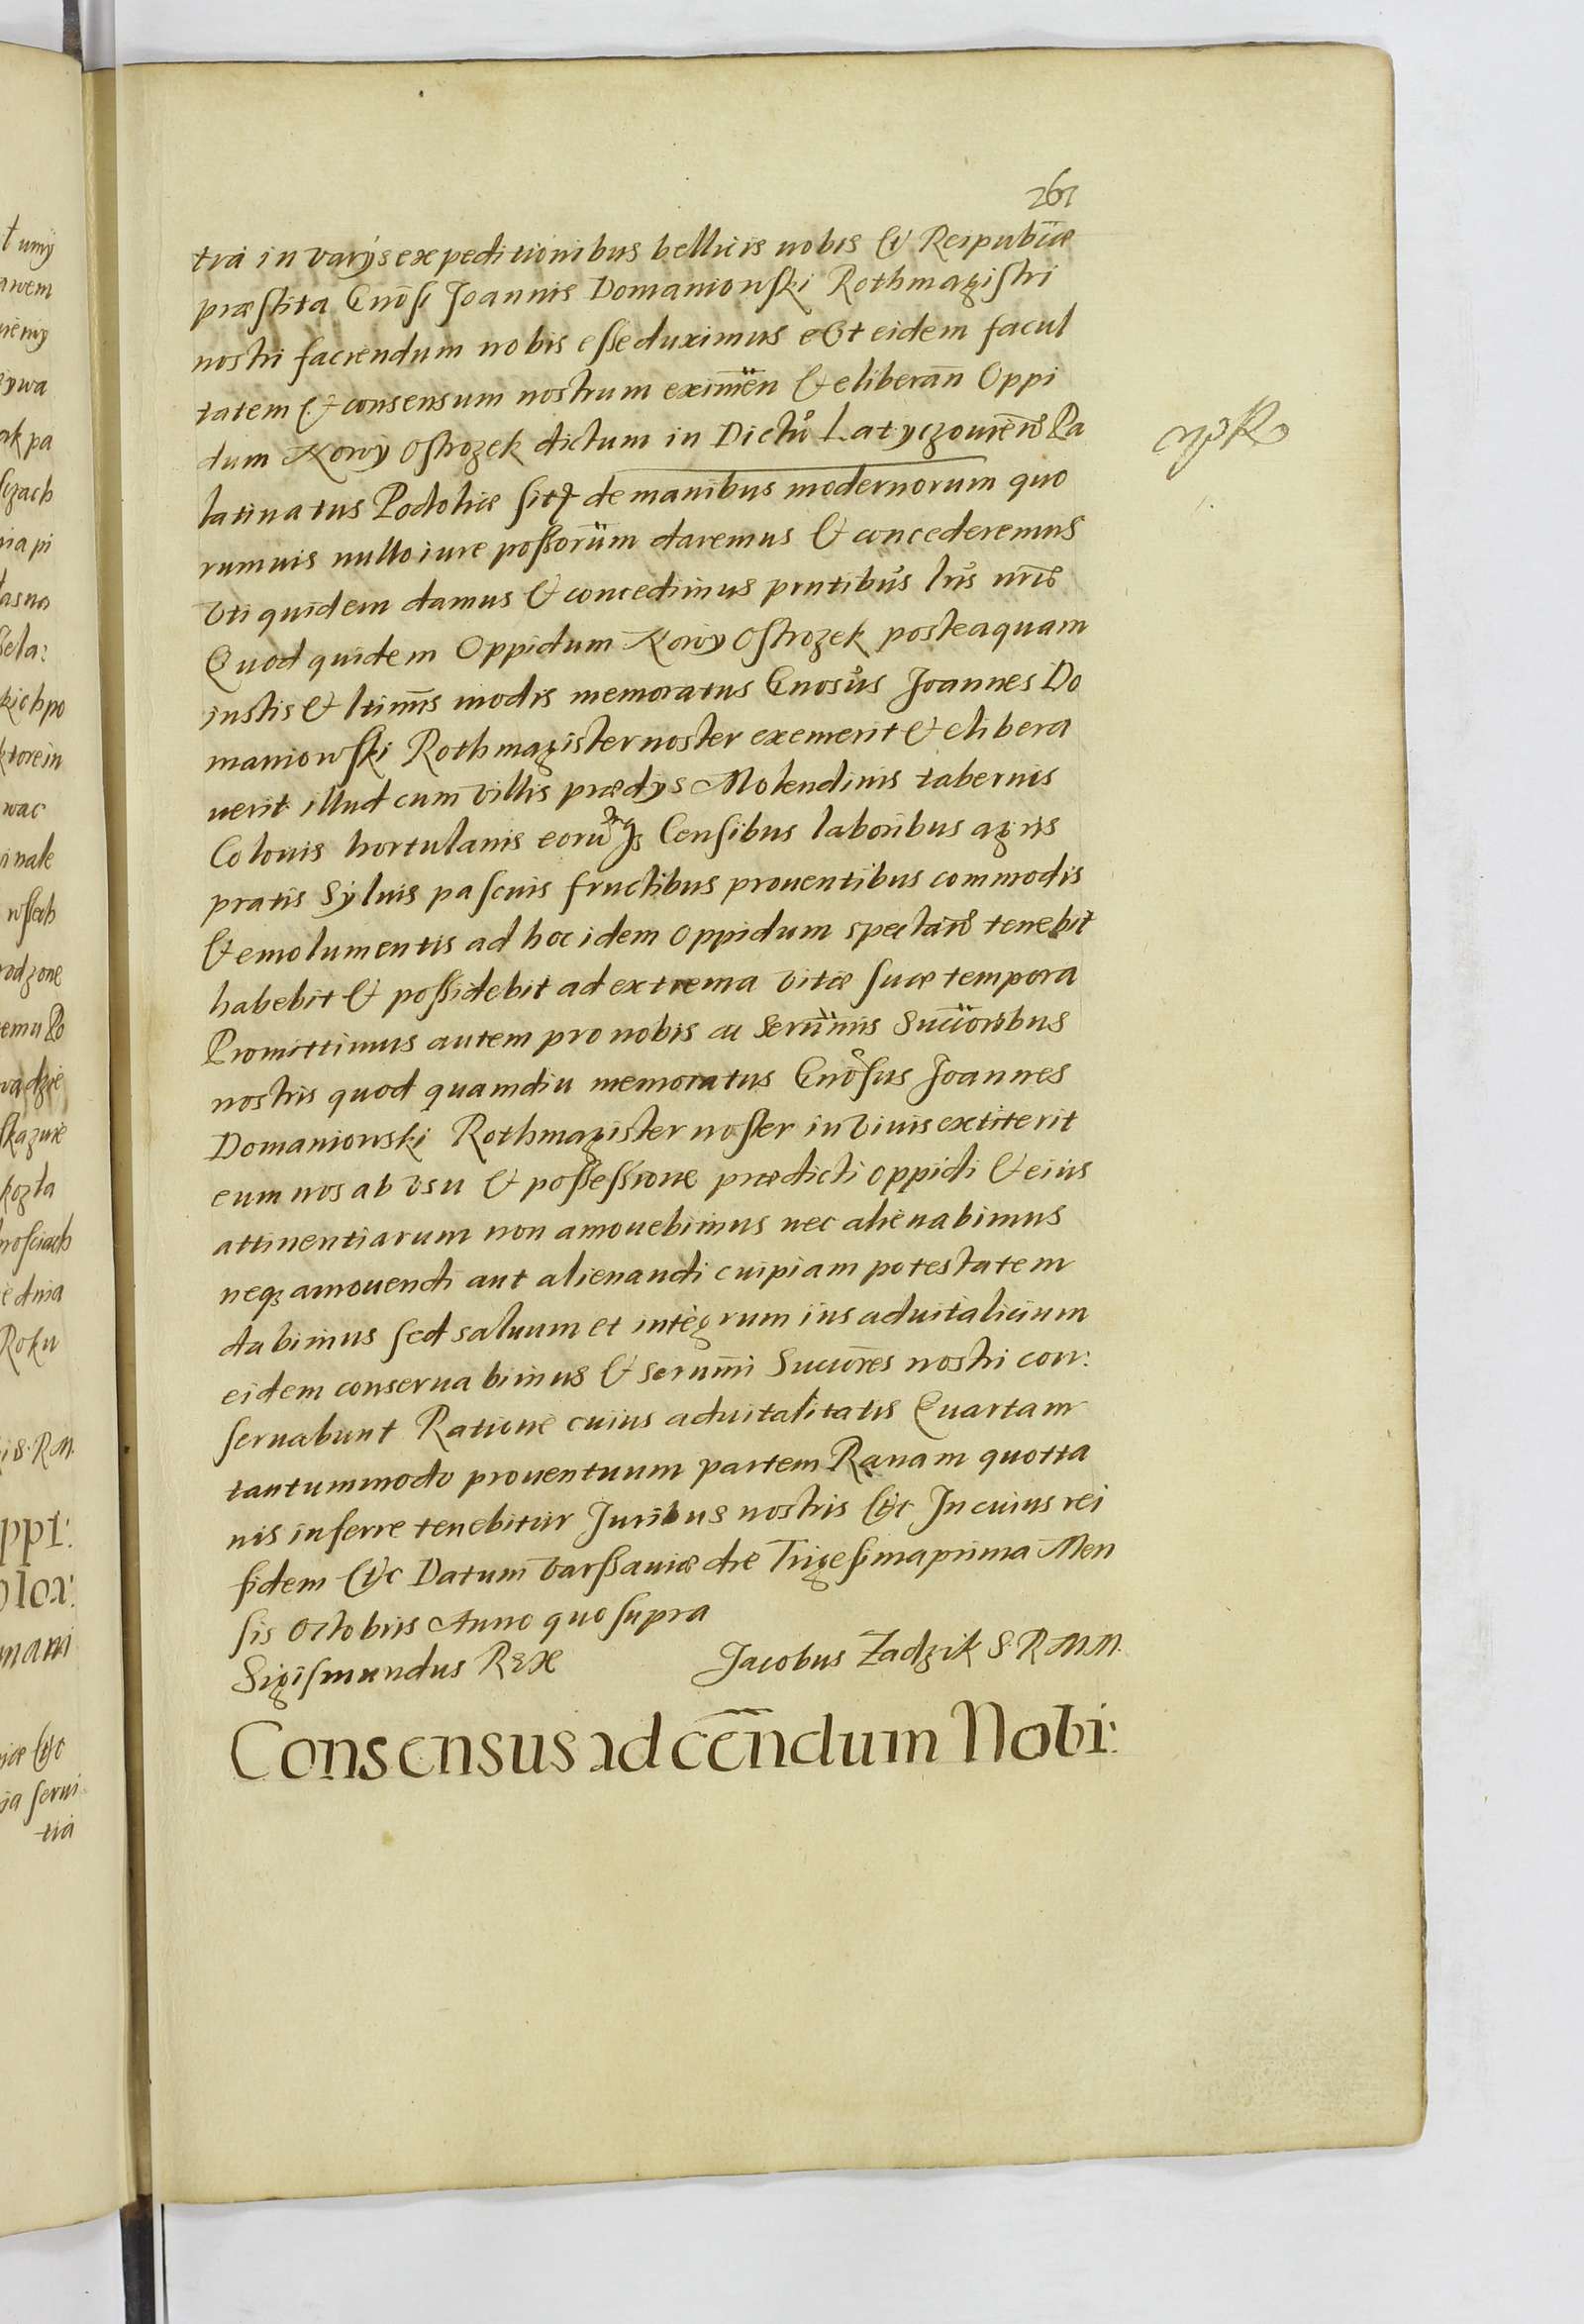 261
tia in varijs expeditionibus bellicis nobis & Reipublicæ
præstita Gnosi Joannis Domaniowski Rothmagistri
nostri faciendum nobis esse duximus ut eidem facul
tatem & consensum nostrum eximen & eliberan Oppi
dum Nowy Ostrozek dictum in Dictu Latyczouien Pa
latinatus Podoliæ sitt de manibus modernorum quo
rumuis nullo iure possorum daremus & concederemus
Vti quidem damus & concedimus pntibus lris nris
Quod quidem Oppidum Nowy Ostrozek posteaquam
iustis & ltimis modis memoratus Gnosus Joannes Do
maniowski Rothmagister noster exemerit & elibera
uerit illud cum villis prædijs Molendinis tabernis
Colonis hortulanis eorumq3 Censibus laboribus agris
pratis Syluis pascuis fructibus prouentibus commodis
& emolumentis ad hoc idem Oppidum spectan tenebit
habebit & possidebit ad extrema vitæ suæ tempora
Promittimus autem pro nobis ac Serimis Succoribus
nostris quod quamdiu memoratus Gnosus Joannes
Domaniowski Rothmagister noster in viuis extiterit
eum nos ab vsu & possessione prædicti oppidi & eius
attinentiarum non amouebimus nec alienabimus
neq3 amouendi aut alienandi cuipiam potestatem
dabimus sed saluum et integrum ius aduitalicium
eidem conseruabimus & serimi Succores nostri con:
seruabunt Ratione cuius aduitalitatis Quartam
tantummodo prouentuum partem Rauam quotta
nis inferre tenebitur Juribus nostris &c In cuius rei
fidem &c Datum Varssauiæ die Trigesima prima Men
sis Octobris Anno quo supra
Sigismundus REX Jacobus Zadzik S. R. M. M.
Consensus ad cendum Nobi: